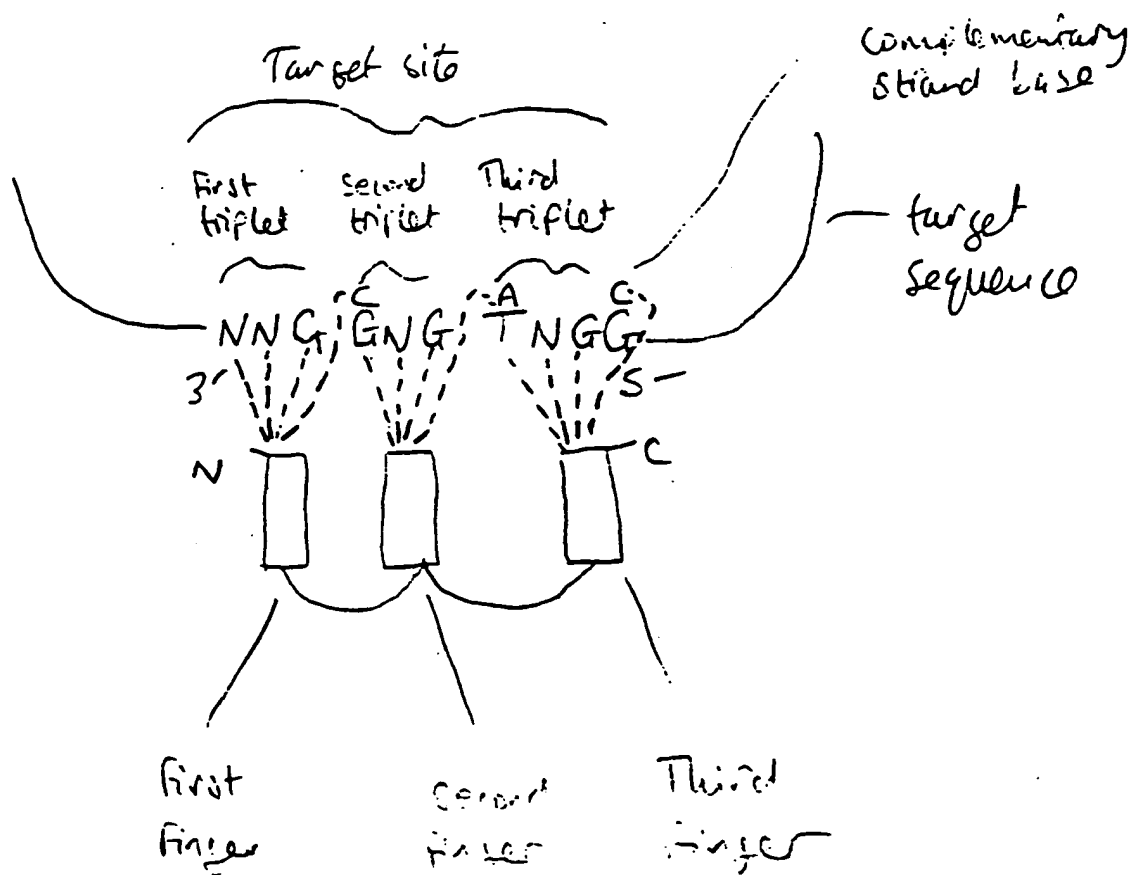 Target site
complementary
strand base
First
triplet
second
triplet
Third
triplet
target
sequence
C A C
NNG GNG TNGG
3' 5
N C
First
Finger
second
finger
Third
finger